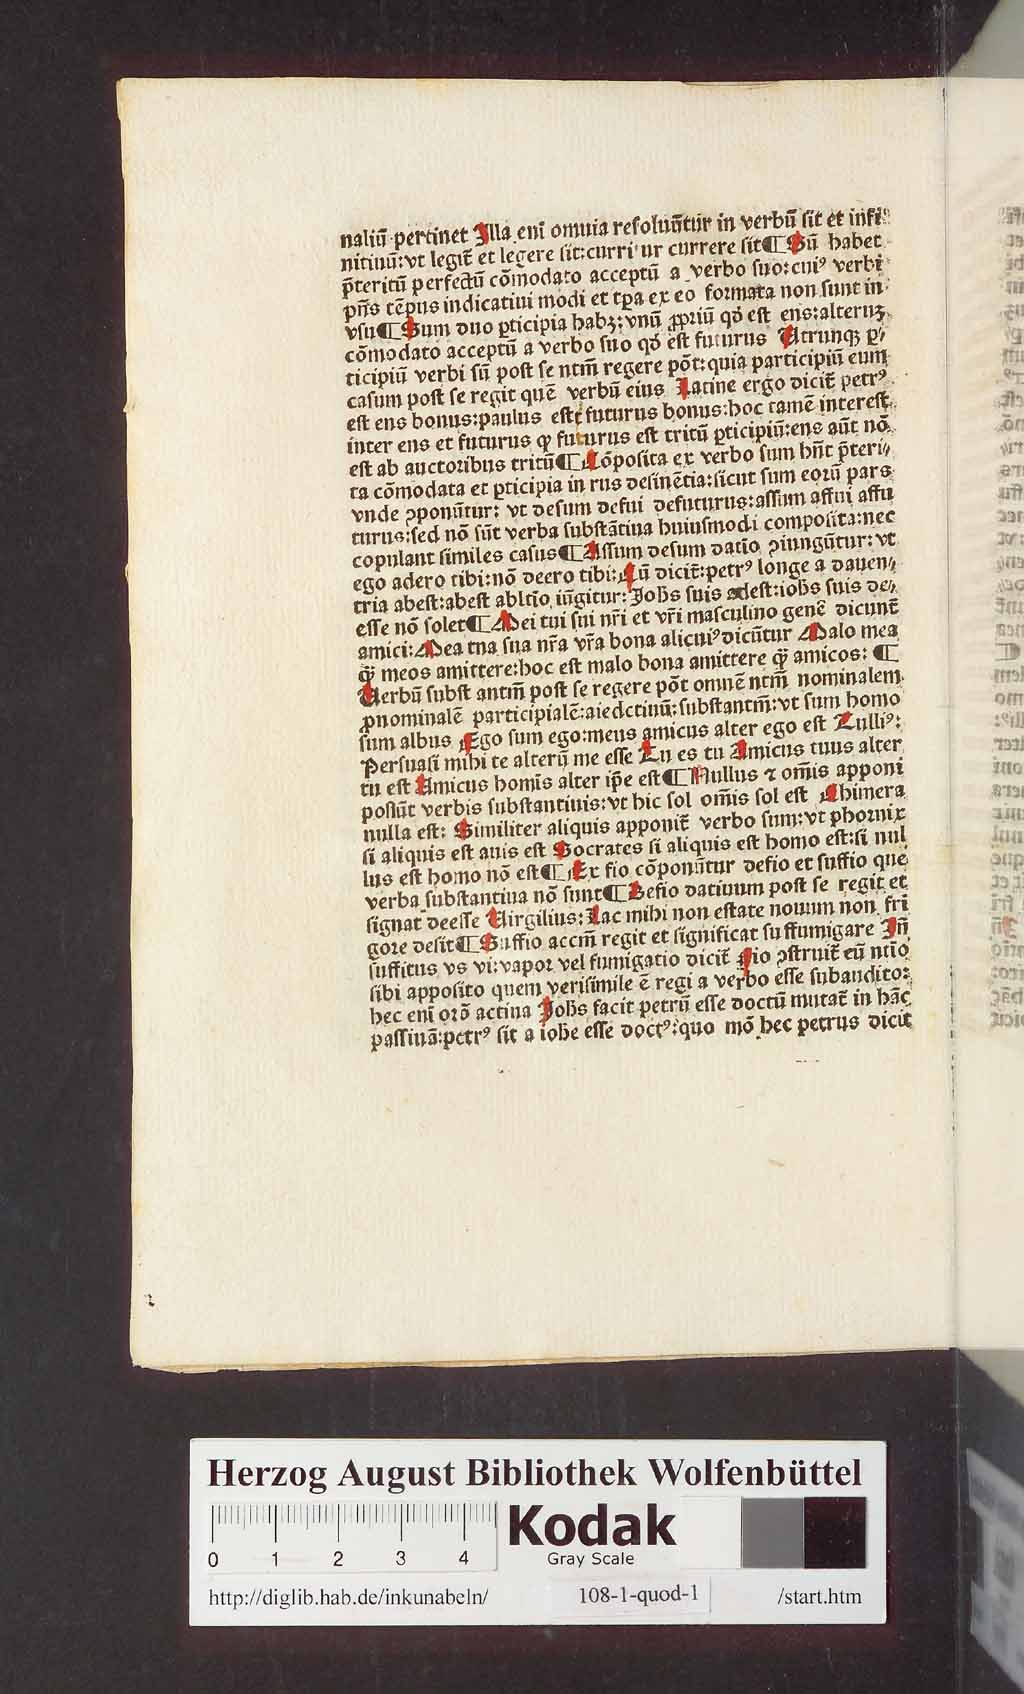 naliū pertinet Illa eni omnia resoluūtur in verbū sit et infi⸗
nitiuū: vt legit̄ et legere sit: curri ur currere sit ¶ Sū habet
p̄teritū perfectū cōmodato acceptū a verbo suo: cuiꝰ verbi
pn̄s tēpus indicatiui modi et tꝑa ex eo formata non sunt in
vsu ¶ Sum duo ꝑticipia habꝫ: vnū ꝓpriū qd̓ est ens: alterūꝫ
cōmodato acceptū a verbo suo qd̓ est futurus Utrunqꝫ ꝑ⸗
ticipiū verbi sū post se ntm̄ regere pōt: quia participiū eum
casum post se regit quē verbū eius Latine ergo dicit̄ petrꝰ
est ens bonus: paulus est futurus bonus: hoc tamē interest
inter ens et futurus ꝙ futurus est tritū ꝑticipiū: ens aūt nō
est ab auctoribus tritū ¶ Cōposita ex verbo sum hn̄t p̄teri⸗
ta cōmodata et ꝑticipia in rus desinētia: sicut sum eoꝝ pars
vnde ꝯponūtur: vt desum defui defuturus: assum affui affu
turus: sed nō sūt verba substātiua huiusmodi composita: nec
copulant similes casus ¶ Assum desum datio ꝯiungūtur: vt
ego adero tibi: nō deero tibi: Cū dicit̄: petrꝰ longe a dauen⸗
tria abest: abest abltīo iūgitur: Johs̄ suis adest: iohs̄ suis de⸗
esse nō solet ¶ Mei tui sui nr̄i et vr̄i masculino genē dicunt̄
amici: Mea tua sua nr̄a vr̄a bona alicuiꝰ dicūtur Malo mea
qȝ̄ meos amittere: hoc est malo bona amittere qȝ̄ amicos: ¶
Uerbū subst antm̄ post se regere pōt omnē ntm̄ nominalem
ꝓnominalē participialē: aiedctiuū: substantm̄: vt sum homo
sum albus Ego sum ego: meus amicus alter ego est Tulliꝰ:
Persuasi mihi te alterū me esse Tu es tu Amicus tuus alter
tu est Amicus homīs alter ip̄e est ¶ Nullus ⁊ om̄is apponi
possūt verbis substantiuis: vt hic sol om̄is sol est Chimera
nulla est: Similiter aliquis apponit̄ verbo sum: vt phornix
si aliquis est auis est Socrates si aliquis est homo est: si nul
lus est homo nō est ¶ Ex fio cōponūtur defio et suffio que
verba substantiua nō sunt ¶ Defio datiuum post se regit et
signat deesse Uirgilius: Lac mihi non estate nouum non fri
gore desit ¶ Suffio accm̄ regit et significat suffumigare In̄
suffitus vs vi: vapor vel fumigatio dicit̄ Fio ꝯstruit̄ cū ntīo
sibi apposito quem verisimile ē regi a verbo esse subaudito:
hec eni orō actiua Johs̄ facit petrū esse doctū mutat̄ in hāc
passiuā: petrꝰ sit a iohe esse doctꝰ: quo mō hec petrus dicit
Herzog August Bibliothek Wolfenbüttel
0 1 2 3 4
Kodak
Gray Scale
http://diglib.hab.de/inkunabeln/ 108-1-quod-1 /start.htm